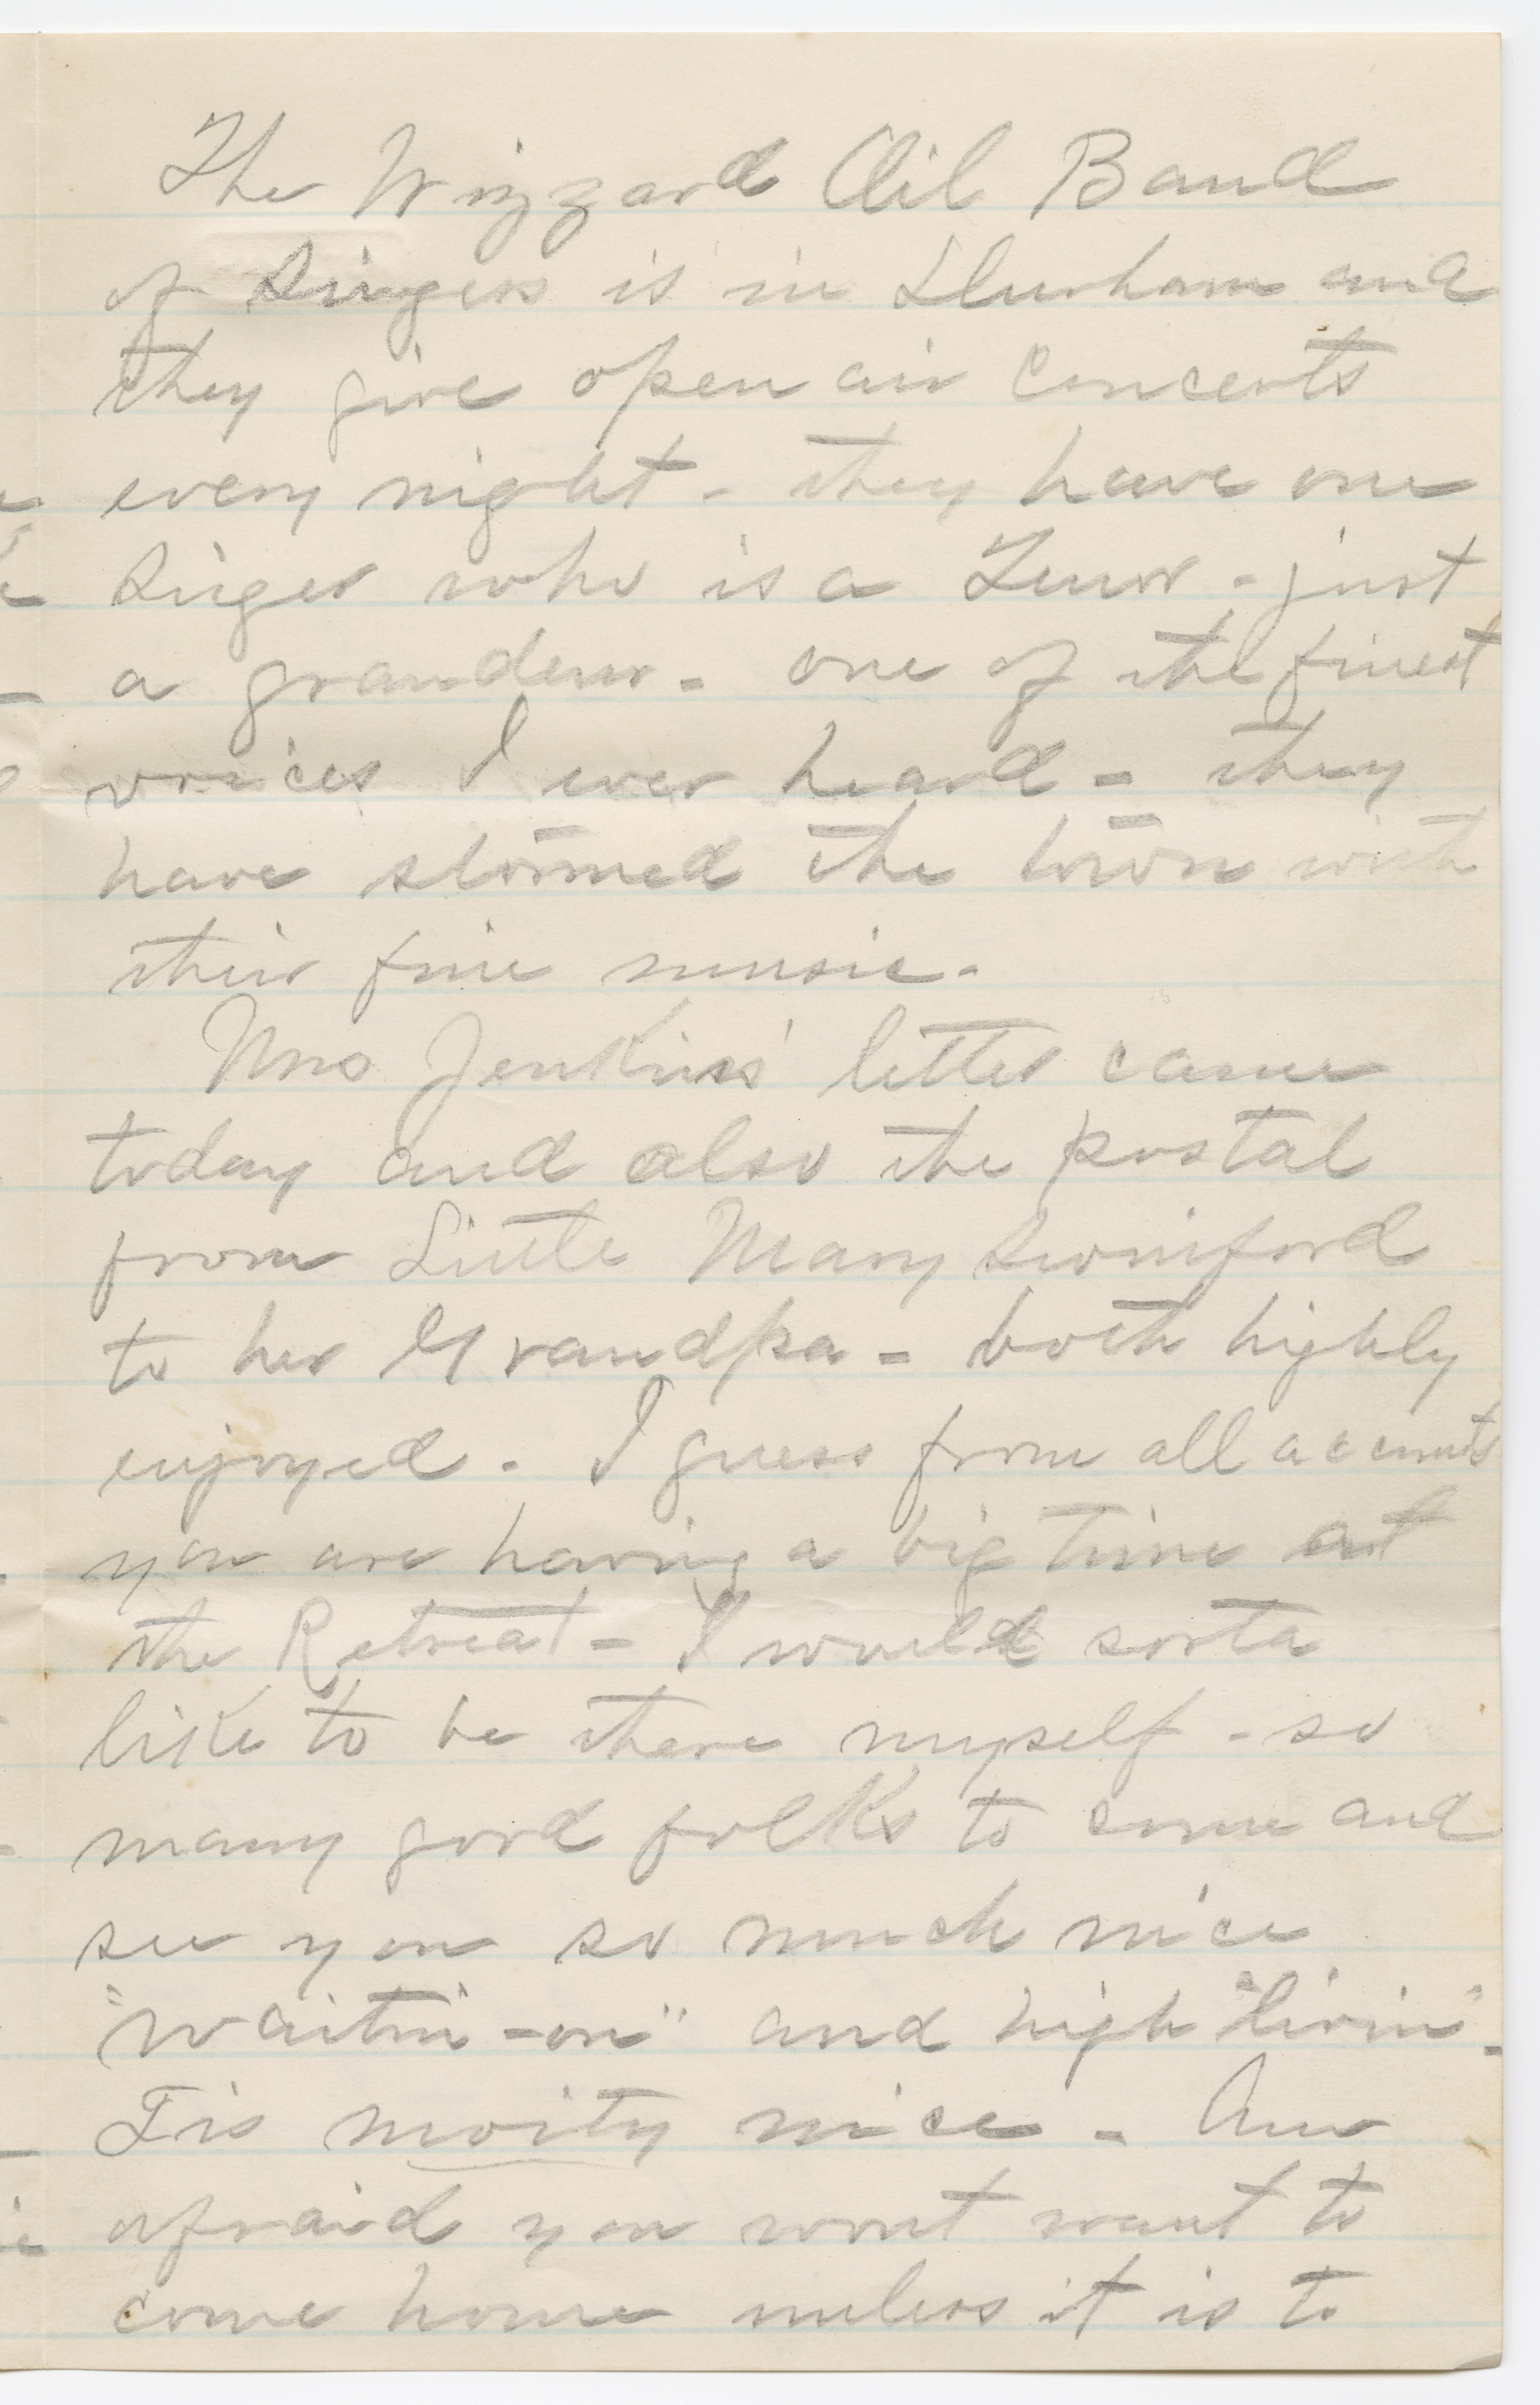 The Wizzard Oil Band
of Singers is in Durham and
they give open air concerts
every night - they have one
Singer who is a Tenor - just
a grandeur - one of the finest
voices I ever heard - they
have stormed the town with
their fine music -
Mrs Jenkins' letter came
today and also the postal
from Little Mary Swinford
to her Grandpa - both highly
enjoyed - I guess from all accounts
you are having a big time at
the Retreat - I would sorta
like to be there myself - so
many good folks to come and
see you so much nice
"waitin'-on" and high "livin'" -
Tis moity nice - Am
afraid you wont want to
come home unless it is to